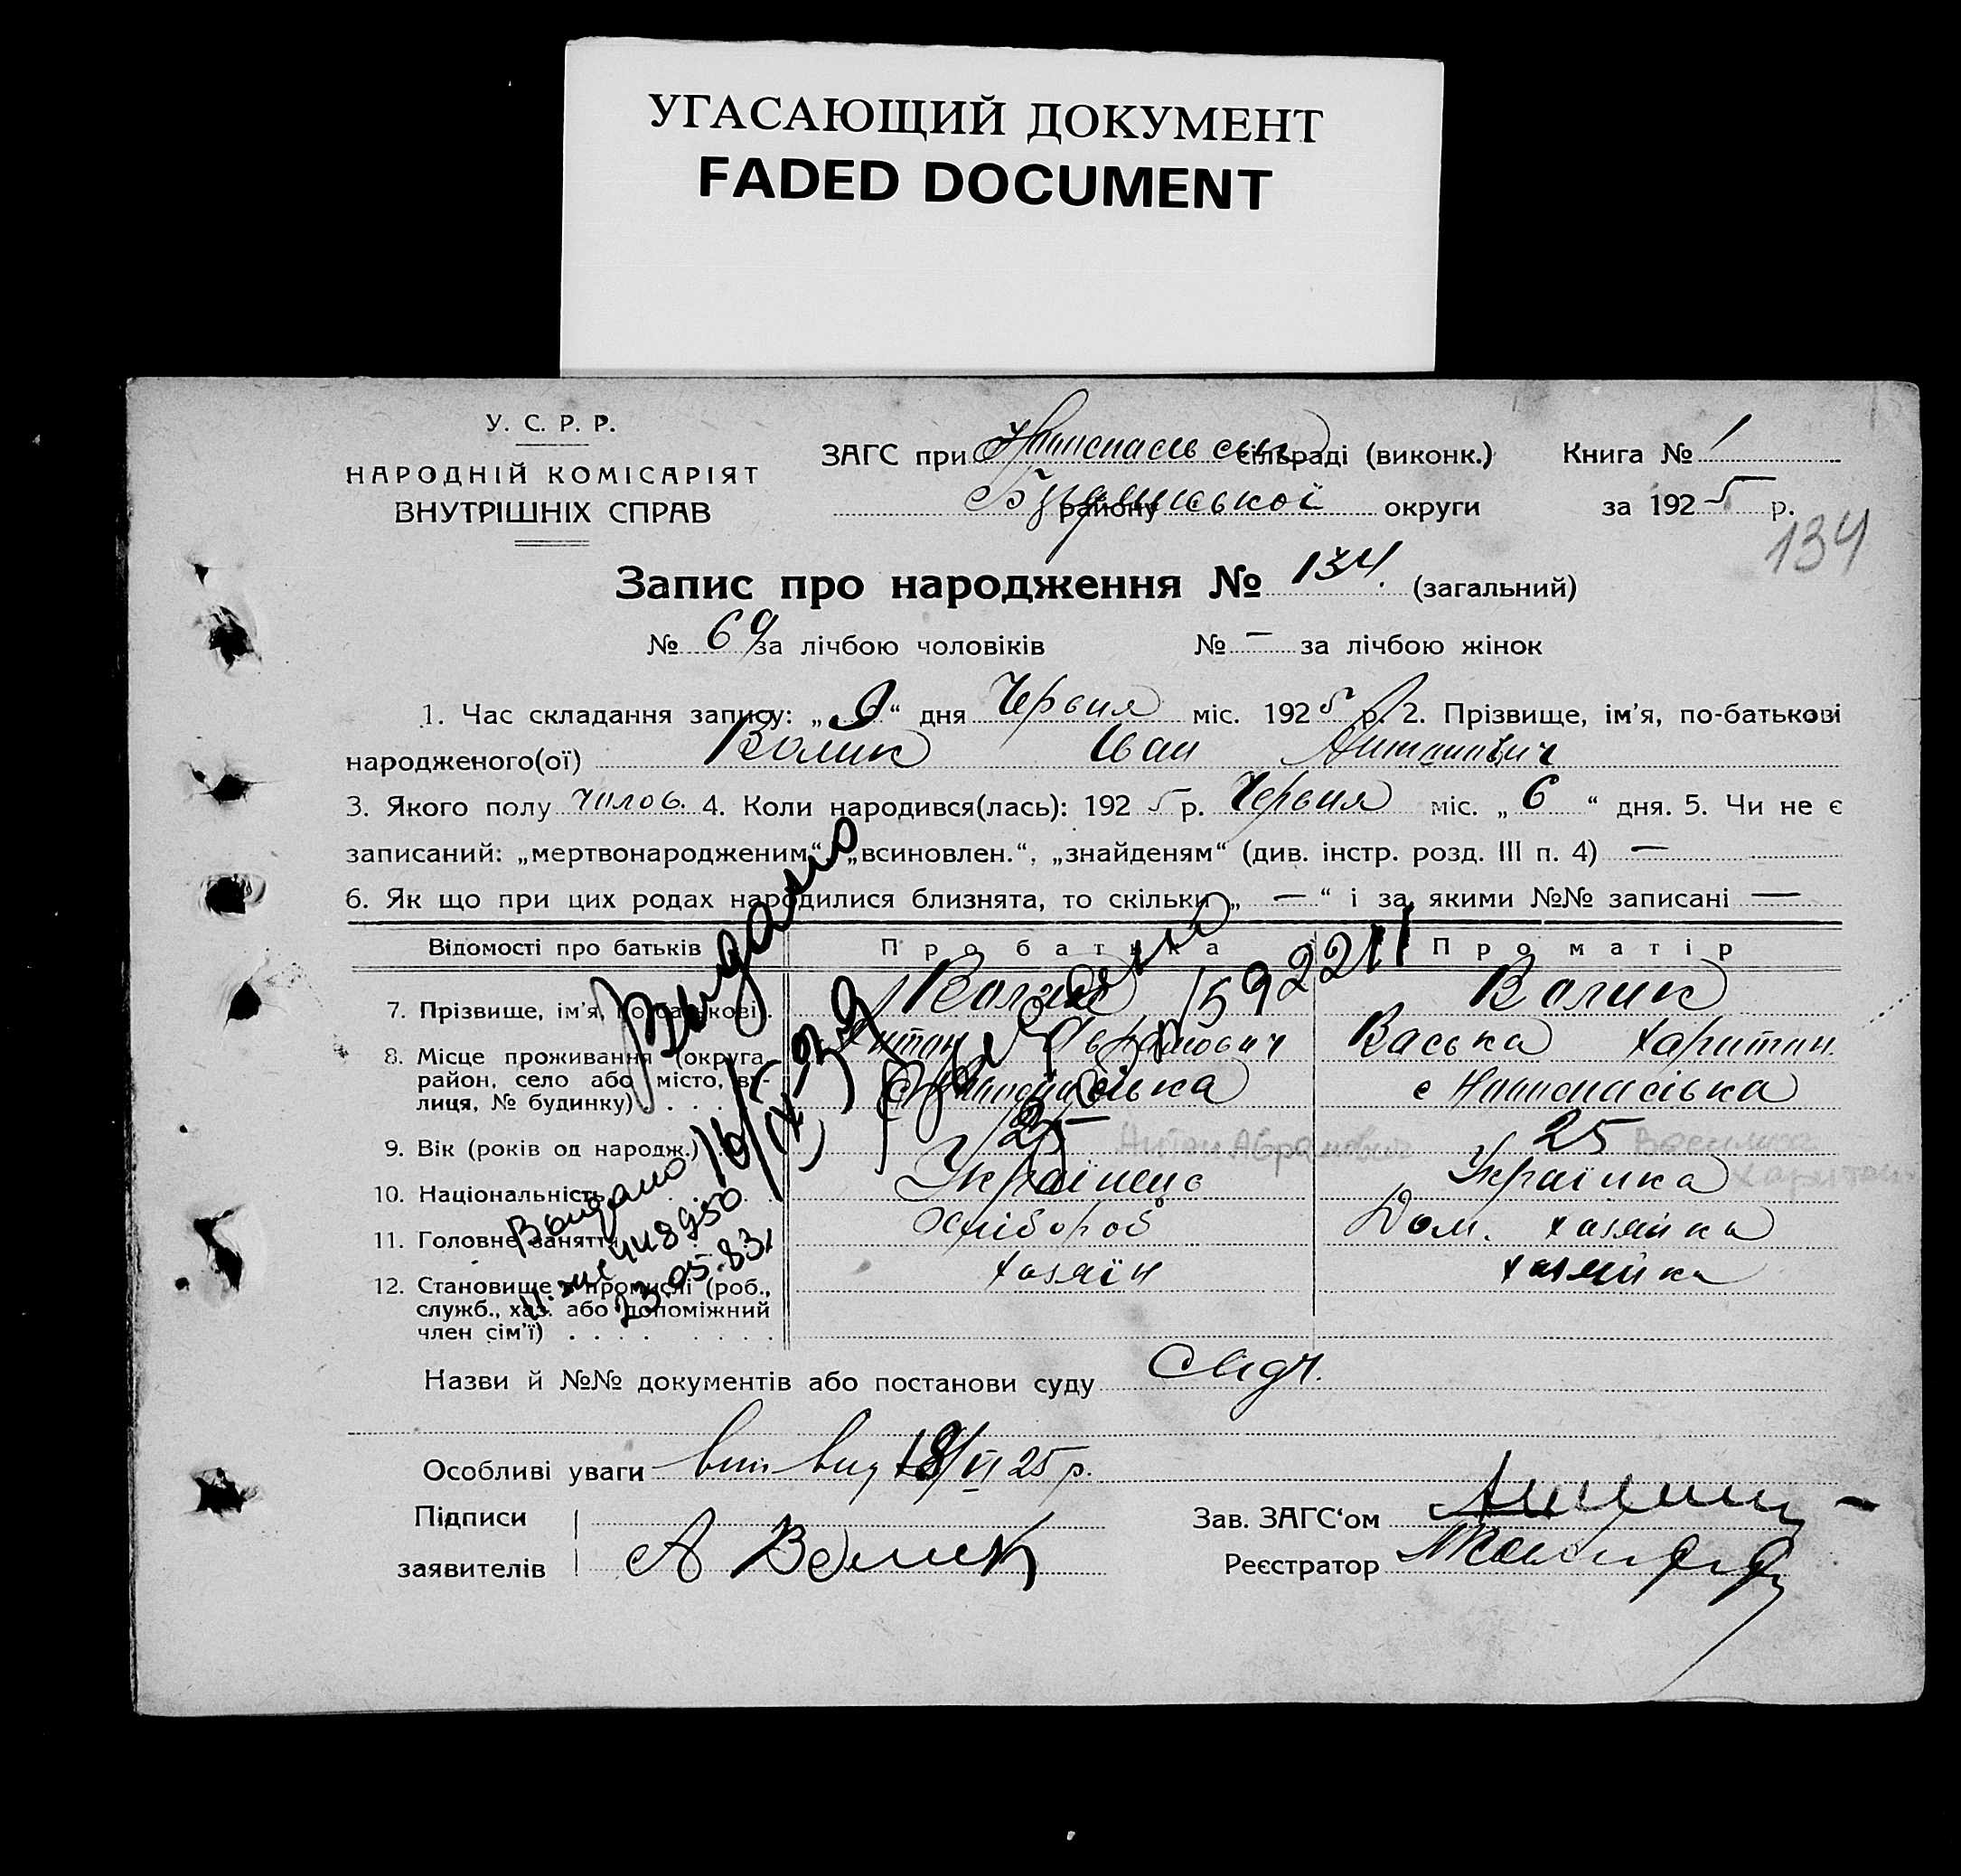 УГАСАЮЩИЙ ДОКУМЕНТ
FADED DOCUMENT
У. С. Р. Р.
НАРОДНІЙ КОМІСАРІЯТ
ВНУТРІШНІХ СПРАВ
ЗАГС при сільраді (виконк.)
району округи
Книга № 1
за 1925 р.
134
Запис про народження № 134. (загальний)
№ 69 за лічбою чоловіків № — за лічбою жінок
1. Час складання запису: „9“ дня Червня міс. 1925 р. 2. Прізвище, ім’я, по-батькові
народженого(ої) Волик Іван Антонович
3. Якого полу чолов. 4. Коли народився(лась): 1925 р. Червня міс. „6“ дня. 5. Чи не є
записаний: „мертвонародженим“, „всиновлен.“, „знайденям“ (див. інстр. розд. III п. 4) —
6. Як що при цих родах народилися близнята, то скільки „—“ і за якими №№ записані —
Відомості про батьків Про батька Про матір
7. Прізвище, ім’я, по-батькові . Волик Волик
Антон Аврамович Васька Харитон.
8. Місце проживання (округа,
район, село або місто, ву-
лиця, № будинку) . . . .
9. Вік (років од народж.) . . 25 25
Антон Абрамович
Василиха
10. Національність Українець Українка
11. Головне заняття Хлібороб Дом. хазяйка
12. Становище в промислі (роб.,
служб., хаз. або допоміжний
член сім’ї) . . . .
хазяїн хазяйка
Выдано
1592211
Выдано
448950
23.05.83
Назви й №№ документів або постанови суду
Особливі уваги 18/VI 25 р.
Підписи
заявителів А Волик
Зав. ЗАГС‘ом
Реєстратор